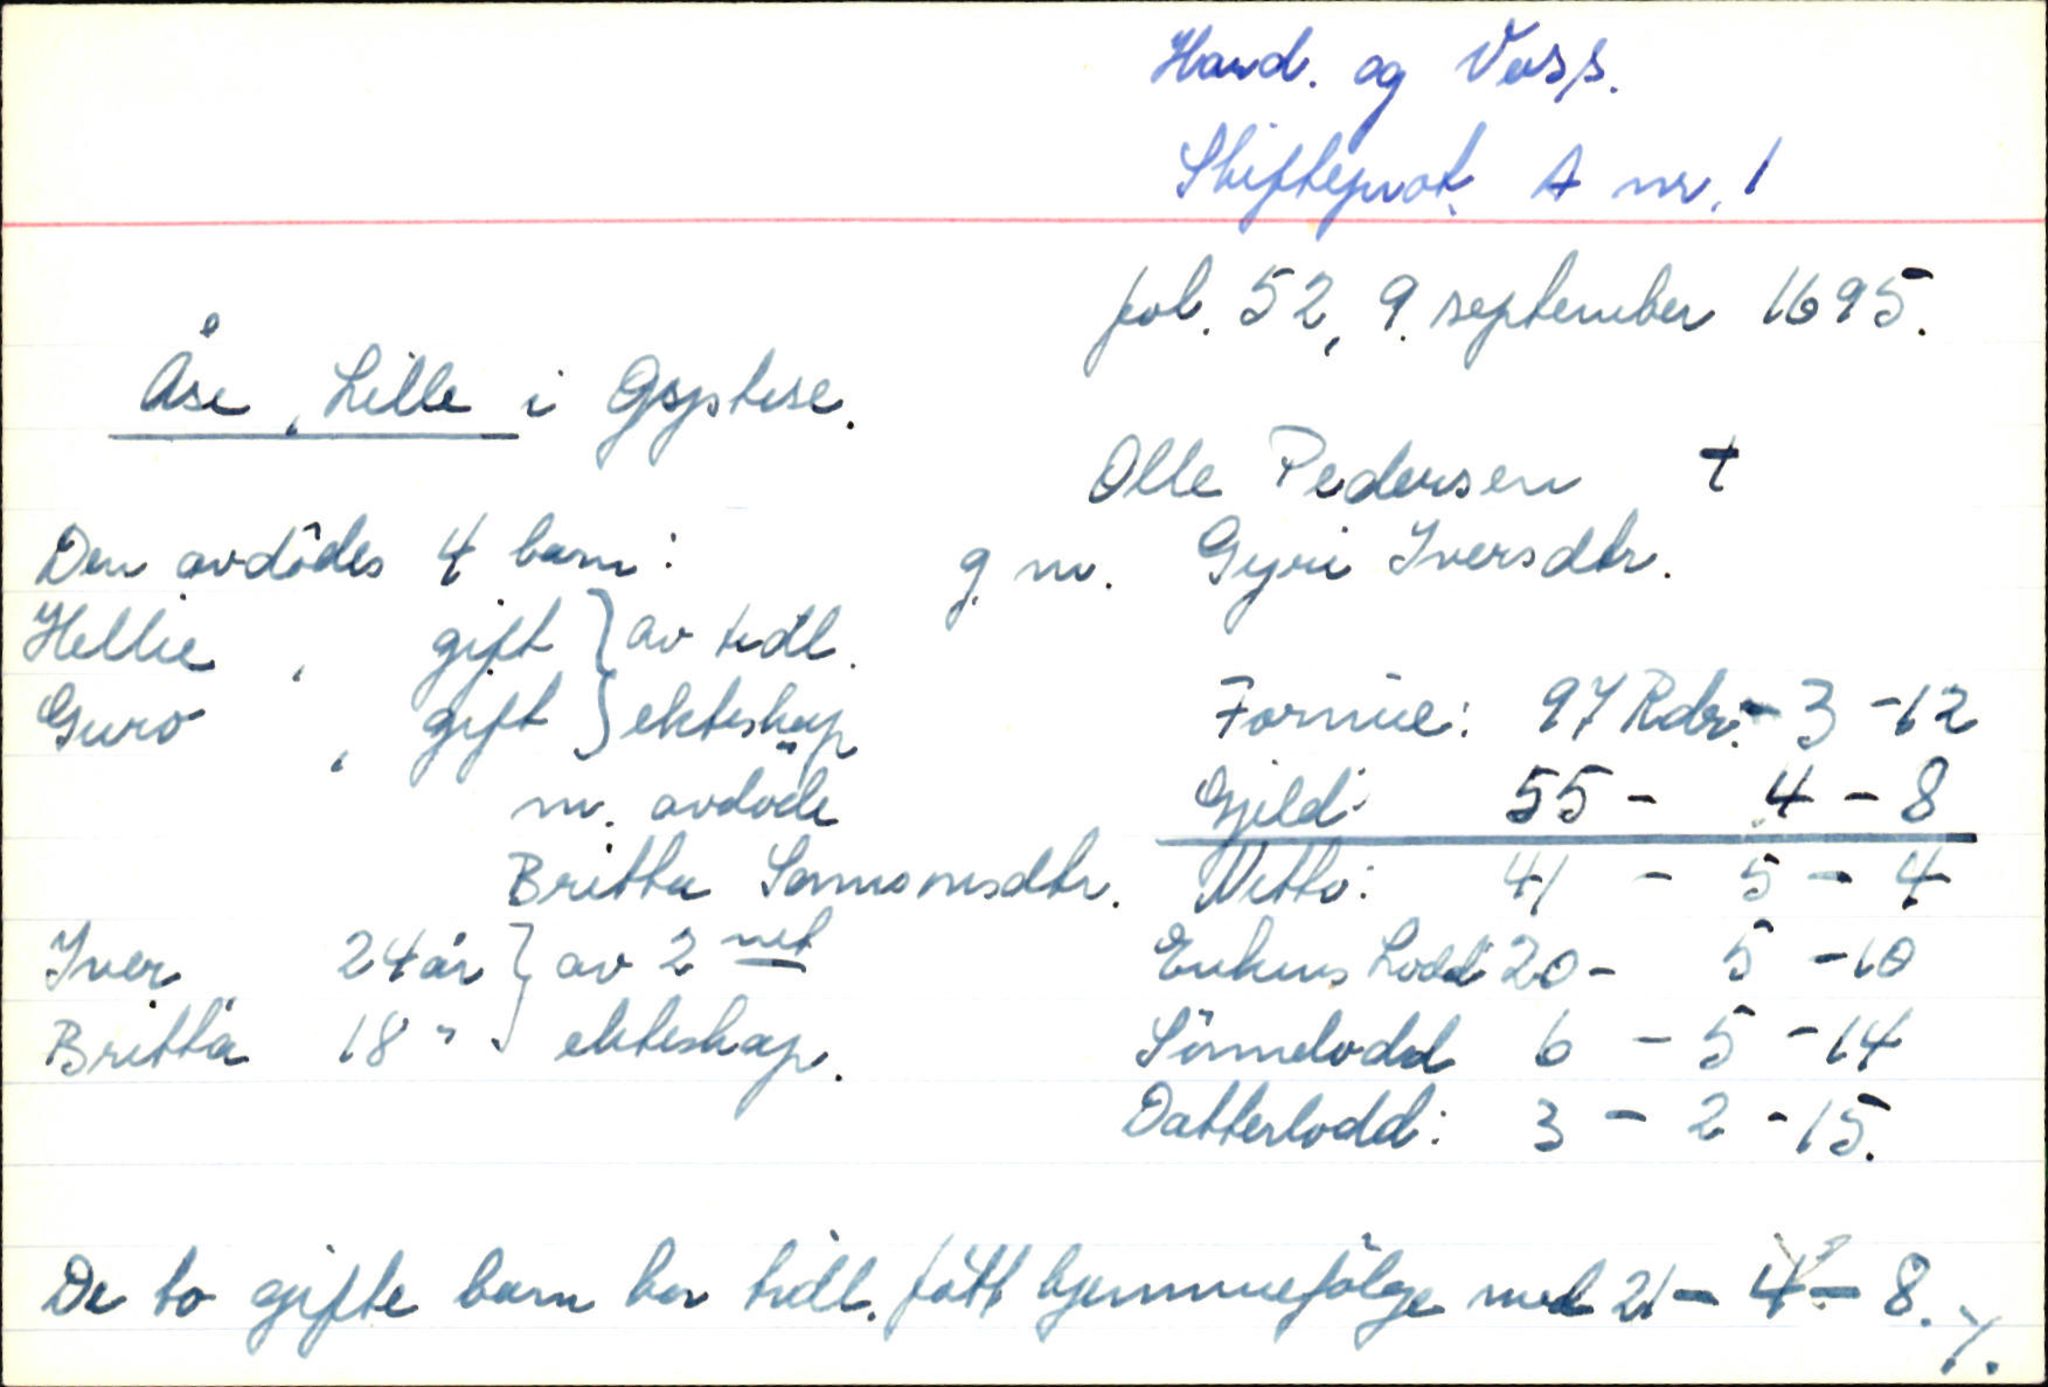 Hard. og Voss.
Skifteprot. A nr. 1
fol. 52, 9. september 1695.
Åse, Lille i
Olle Pedersen †
Den avdödes 4 barn: g. m. Gyri Iversdtr.
Hellie, gift } av tidl.
Guro, gift } ekteskap
m. avdöde
Britta Samsonsdtr.
Iver 24 år } av 2 net
Britta 18 " ekteskap.
Formue: 97 Rdr. - 3 - 12
Gjeld: 55 - 4 - 8
Netto: 41 - 5 - 4
Enkens Lodd 20 - 5 - 10
Sönnelodd 6 - 5 - 14
Datterlodd: 3 - 2 - 15.
De to gifte barn har tidl. fått hjemmefölge med 21 - 4 - 8. ⁒